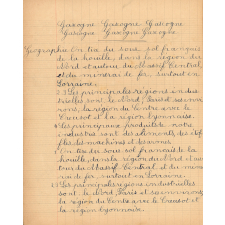 Gascogne Gascogne Gascogne
Gascogne Gascogne Gascogne
Géographie On tire du sous-sol français
de la houille, dans la région du
Nord et autour du Massif Central,
et du minerai de fer, surtout en
Lorraine.
2 Les principales régions indus
trielles sont le Nord, Paris et ses envi
rons, la région du Centre avec le
Creusot et la région lyonnaise.
les principaux produits de notre
industrie sont des aliments, des étof
fes, les machines et les armes.
On tire du sous-sol français la
houille, dans la région du Nord et au
tour du Massif Central, et du mine
rai de fer, surtout en Lorraine.
2 Les principales régions industrielles
sont le Nord, Paris et ses environs,
la région du Centre avec le Creusot et
la région lyonnaise.